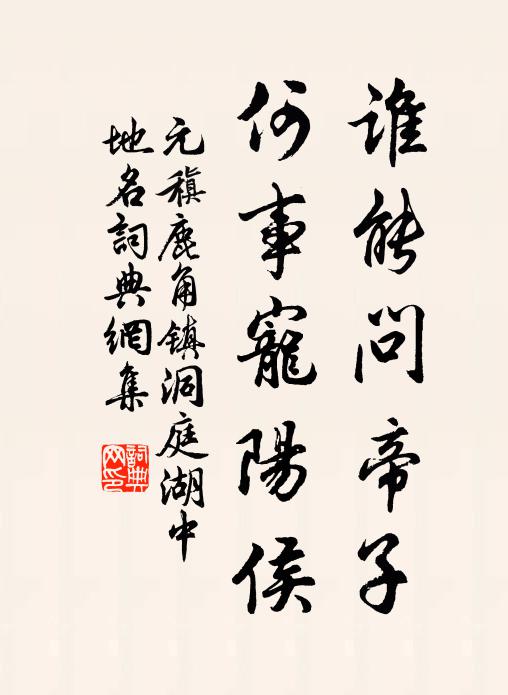 誰能問帝子
何事寵陽侯
元稹鹿角鎮洞庭湖中
地名詞典網集
詞典网印